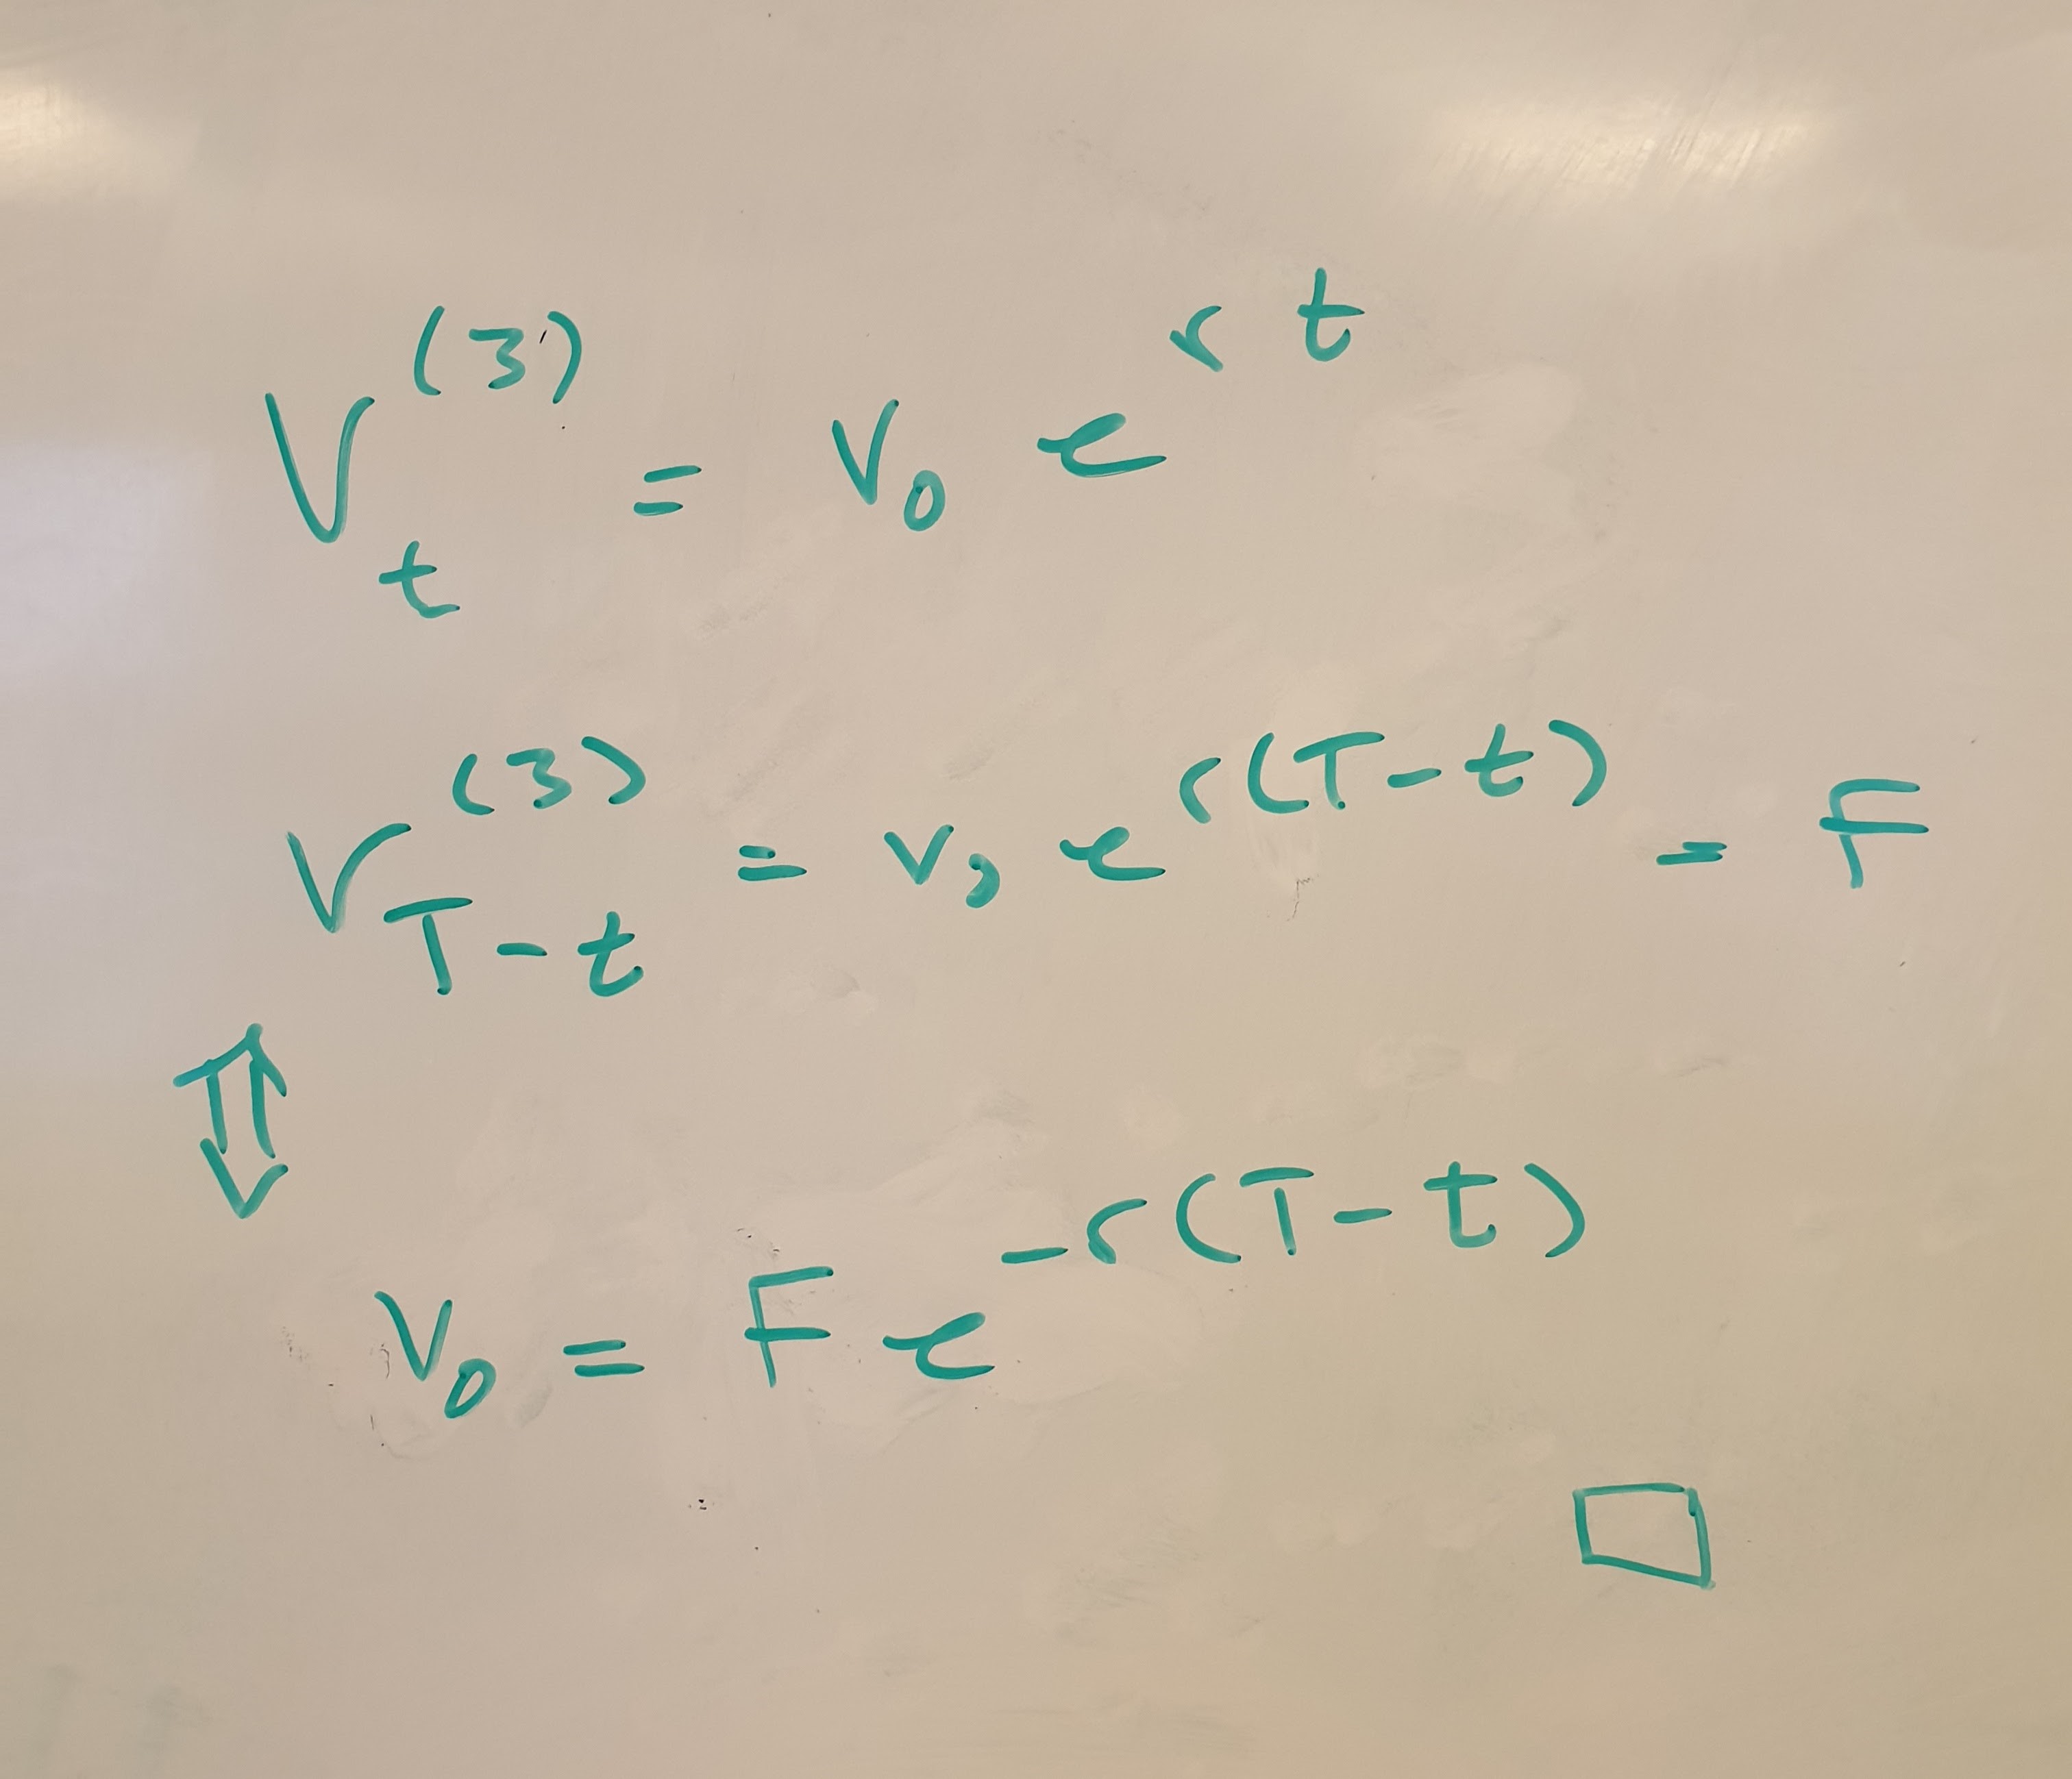 V_t^{(3)} = V_0 e^{rt}
V_{T-t}^{(3)} = V_0 e^{r(T-t)} = F
⇕
V_0 = F e^{-r(T-t)}
□